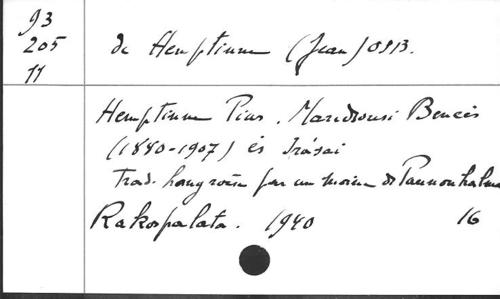 93
205
11
de Hemptinne (Jean) OSB.
Hemptinne Pius. Maredsousi Bencés
(1880-1907) és Irásai
Trad. hongroise par un moine de Pannonhalma
Rakospalota. 1940 16